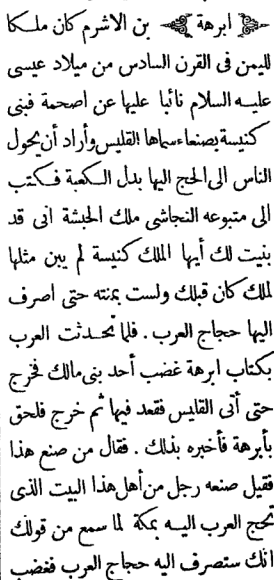 ﴿ ابرهة ﴾ بن الاشرم كان ملكا
لليمن فى القرن السادس من ميلاد عيسى
عليه السلام نائبا عليها عن اصحمة فبنى
كنيسة بصنعاء سماها القليس وأراد أن يحول
الناس الى الحج اليها بدل الكعبة فكتب
الى متبوعه النجاشى ملك الحبشة انى قد
بنيت لك أيها الملك كنيسة لم يبن مثلها
لملك كان قبلك ولست بمنته حتى اصرف
اليها حجاج العرب . فلما تحدثت العرب
بكتاب ابرهة غضب أحد بنى مالك فخرج
حتى أتى القليس فقعد فيها ثم خرج فلحق
بأبرهة فأخبره بذلك . فقال من صنع هذا
فقيل صنعه رجل من أهل هذا البيت الذى
تحج العرب اليه بمكة لما سمع من قولك
انك ستصرف اليه حجاج العرب فغضب